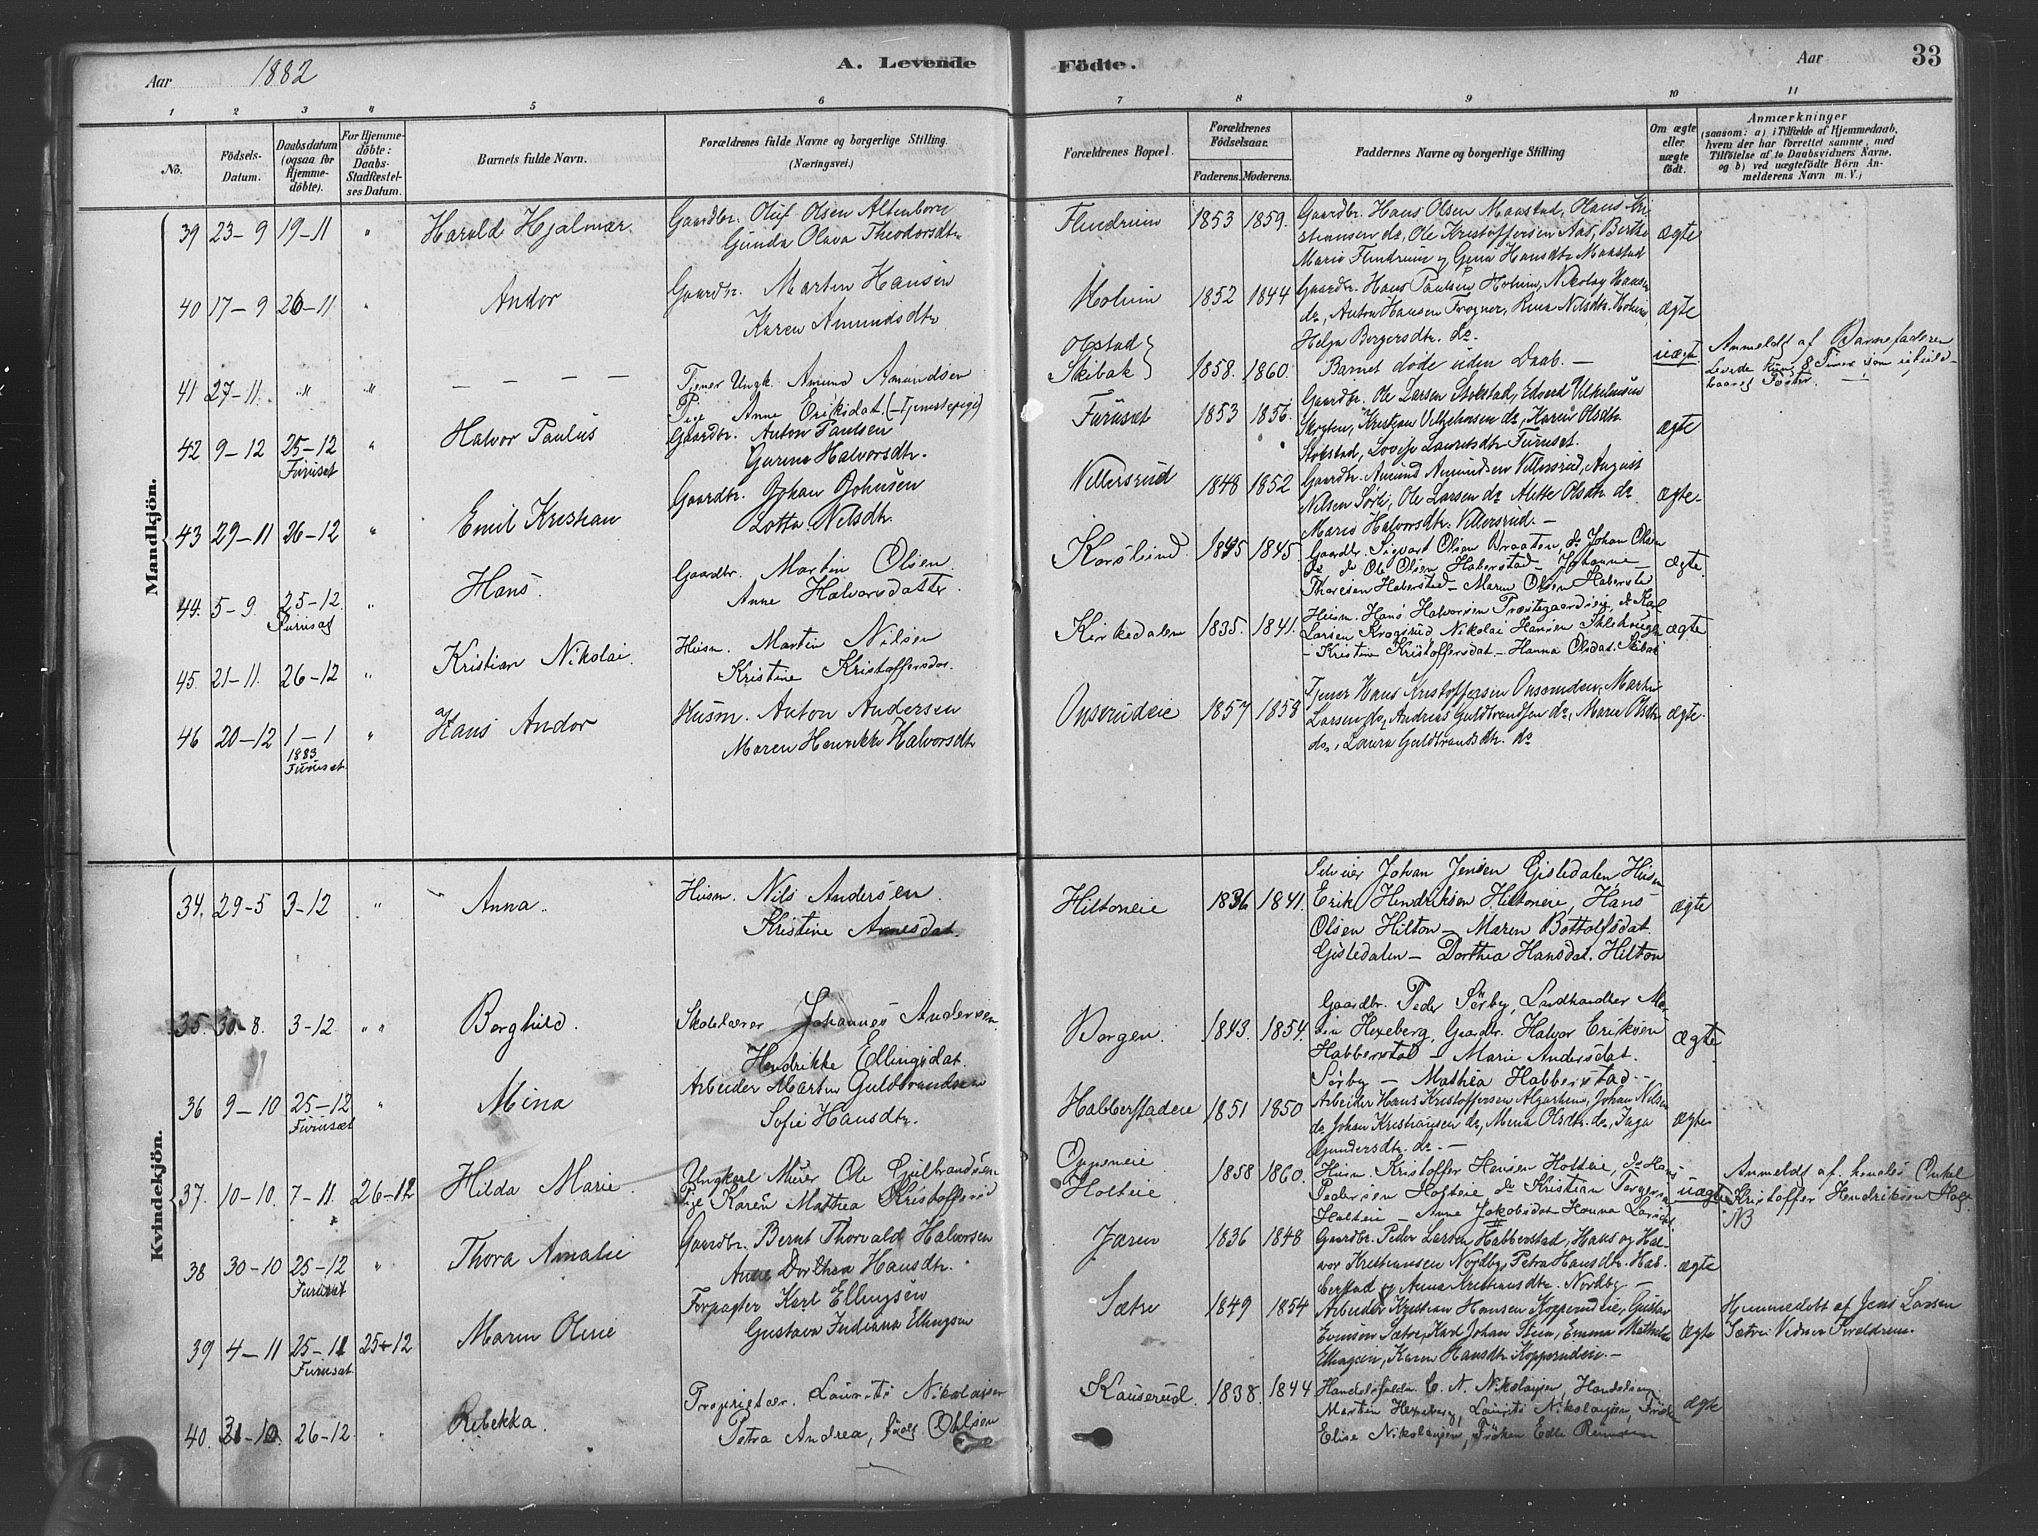 Aar 1882 A. Levende Födte. Aar 33
1 2 3 4 5 6 7 8 9 10 11
No.
Födsels-Datum.
Daabsdatum (ogsaa for Hjemme-döbte).
For Hjemme-döbte: Daabs-Stadfæstelses Datum.
Barnets fulde Navn.
Forældrenes fulde Navne og borgerlige Stilling. (Næringsvei.)
Forældrenes Bopæl.
Forældrenes Födselsaar. Faderens. Moderens.
Faddernes Navne og borgerlige Stilling
Om ægte eller uægte født.
Anmærkninger (saasom: a) i Tilfælde af Hjemmedaab, hvem der har forrettet samme, med Tilføielse af to Daabsvidners Navne, og b) ved uægtefödte Börn Anmelderens Navn m. V.;
Mandkjön.
39 23-9 19-11 " Harald Hjalmar. Gaardbr. Oluf Olsen Altenborn
Gunda Olava Theodorsdtr Flindrum 1853 1859. Gaardbr. Hans Olsen Maastad, Hans Kri-
stiansen do, Ole Kristoffersen Aas, Berthe
Marie Flindrum og Gina Hansdtr. Maastad ægte
40 17-9 26-11 " Andor Gaardbr. Martin Hansen
Karen Amundsdtr. Holum 1852 1844 Gaardbr. Hans Paulsen Holum, Nikolay Hansen
do, Anton Hansen Frogner, Rina Nilsdtr. Holum,
Helga Bergersdtr. do. ægte
41 27-11. " " — — — — Tjener Ungk. Amund Amundsen
Pige Anne Eriksdat. (—Tjenestepige) Olstad
Skibak 1858. 1860. Barnet døde uden Daab. — uægte Anmeldt af Barnefaderen
Levede kun 8 Timer som
42 9-12 25-12 Furuset " Halvor Paulus Gaardbr. Anton Paulsen
Gurine Halvorsdtr. Furuset 1853 1856. Gaardbr. Ole Larsen Stokstad, Edvard Vilhelmsen
Skryten, Kristian Vilhelmsen do, Karen Olsdtr.
Stokstad, Lovise Lauritsdtr Furuset. ægte
43 29-11 26-12 " Emil Kristian Gaardbr. Johan Johnsen
Lotta Nilsdtr. Villersrud 1848 1852 Gaardbr. Amund Amundsen Villersrud, August
Nilsen Sørli, Ole Larsen do Alette Olsdtr. do
Marie Halvorsdtr. Villersrud. — ægte
44. 5-9 25-12. Furuset " Hans. Gaardbr. Martin Olsen.
Anne Halvorsdatter. Korslund. 1845 1845. Gaardbr. Sigvart Olsen Braaten, do Johan Olsen
do do Ole Olsen Haberstad — Johanne
Thoresen Haberstad — Maren Olsen Habersta ægte.
45. 21-11. 26-12 " Kristian Nikolai. Husm. Martin Nilsen
Kristine Kristoffersdat. Kirkedalen 1835. 1841. Husm. Hans Halvorsen Præstegaardseie, do Karl
Larsen Krogsrud Nikolai Hansen
— Kristine Kristoffersdat. — Hanna Olsdat. Skibak ægte
46 20-12 1-1 1883 Furuset " Hans Andor Husm. Anton Andersen
Maren Henrikke Halvorsdtr Onserudeie 1857 1858 Tjener Hans Kristoffersen Onserudeie, Martin
Larsen do, Andreas Guldbrandsen do, Maren Olsdtr
do, Laura Guldbrandsdtr. do ægte.
Kvindekjön.
34. 29-5 3-12 " Anna. Husm. Nils Andersen.
Kristine Arnesdat. Hiltoneie 1836 1841. Selveier Johan Jensen Gisledalen Husm
Erik Hendriksen Hiltoneie, Hans
Olsen Hilton — Maren Bottolfsdat.
Gisledalen — Dorthea Hansdat. Hilton ægte
35. 30-8. 3-12. " Borghild. Skolelærer Johannes Andersen.
Hendrikke Ellingsdat. Borgen. 1843. 1854. Gaardbr. Peder Sørby, Landhandler Mar-
tin Hexeberg, Gaardbr. Halvor Eriksen
Habberstad — Marie Andersdat.
Sørby — Mathea Habberstad — ægte.
36 9-10 25-12 Furuset " Mina Arbeider Martin Guldbrandsen
Sofie Hansdtr. Habberstadeie 1851 1850 Arbeider Hans Kristoffersen Algarheim, Johan Nilsen
do Johan Kristiansen do, Mena Olsdtr. do, Inga
Gundersdtr. do — ægte
37. 10-10. 7-11. 26-12 Hilda Marie. Ungkarl Murer Ole Gulbrandsen
Pige Karen Mathea Kristoffersd Oppeneie
Holteie. 1858 1860. Husm. Kristoffer Hansen Holteie, do Hans
Pedersen Holteie do Kristian Torgersen
Holteie — Anne Jakobsdat. Hanna Larsdat. uægte Anmeldt af hendes Onkel
Kristoffer Hendriksen Holt.
NB
38 30-10 25-12 Furuset " Thora Amalie Gaardbr. Bernt Thorvald Halvorsen
Anne Dorthea Hansdtr. Jaren 1836 1848 Gaardbr. Peder Larsen Habberstad, Hans og Hal-
vor Kristiansen Nordby, Petra Hansdtr. Hab-
berstad og Anna Kristiansdtr. Nordby — ægte
39 4-11 25-11 Furuset 25-12 Maren Oline Forpagter Karl Ellingsen
Gustava Indiana Ellingsen Sætre 1849 1854 Arbeider Kristian Hansen Kopperudeie, Gustav
Evensen Sætre, Karl Johan Stein, Emma Mathilde
Ellingsen, Karen Hansdtr. Kopperudeie. — ægte Hjemmedøbt af Jens Larsen
Sætre. Vidner Foreldrene.
40. 31-10. 26-12. " Rebekka. Proprietær. Laurits Nikolaisen
Petra Andrea, født Ohlsen Kauserud. 1838. 1844 Handelsfuldm. C. N. Nikolaysen, Handelsm
Martin Hexeberg, Laurits Nikolaysen, Frøken
Elise Nikolaysen, Frøken Edle ægte